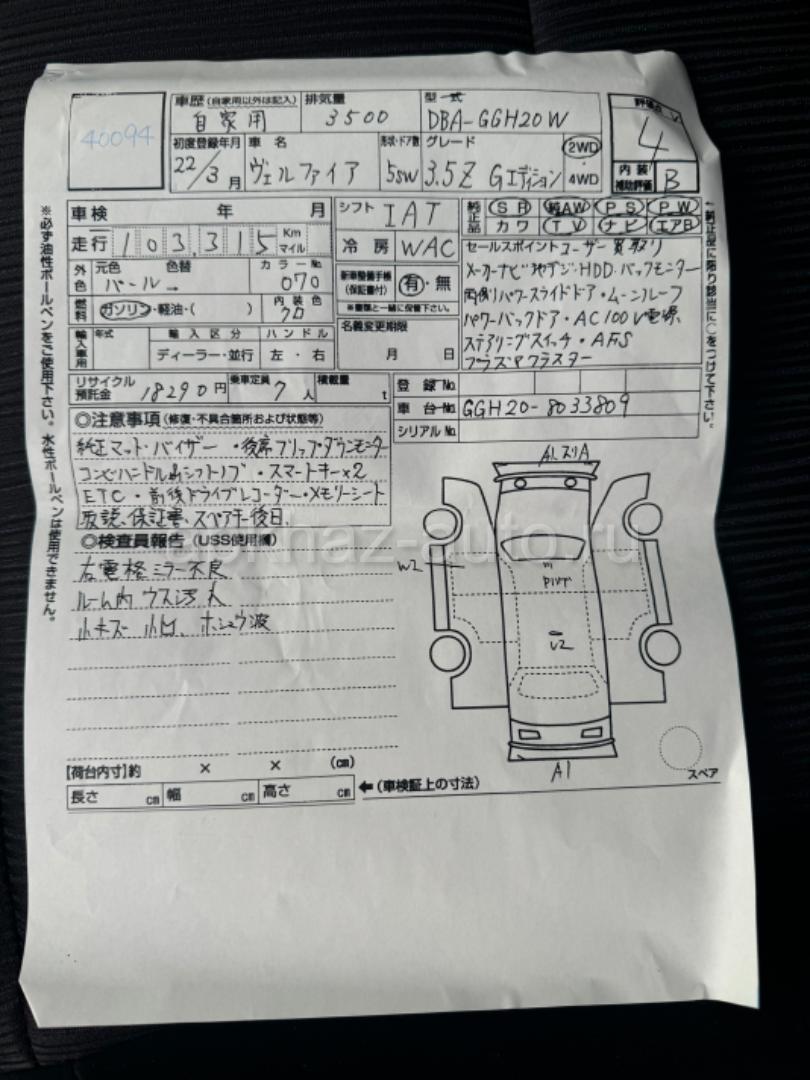 40094
車歴(自家用以外は記入) 自家用
排気量 3500
型式 DBA-GGH20W
評価点 4
初度登録年月 22/3月
車名 ヴェルファイア
形状・ドア数 5SW
グレード 3.5Z Gエディション
2WD・4WD
内装補助評価 B
車検 年 月
シフト IAT
純正品 SR 純AW PS PW
カワ TV ナビ エアB
走行 103,315 Km マイル
冷房 WAC
セールスポイント ユーザー買取り
外色 元色 色替 カラーNo.
パール→ 070
新車整備手帳(保証書付) 有・無
※書類と一緒に保管下さい。
メーカーナビ地デジ・HDD・バックモニター
両側パワースライドドア・ムーンルーフ
燃料 ガソリン・軽油・( )
内装色 クロ
名義変更期限
月 日
パワーバックドア・AC100V電源
輸入車用 年式 輸入区分 ハンドル
ディーラー・並行 左・右
ステアリングスイッチ・AFS
プラズマクラスター
リサイクル預託金 18290円
乗車定員 7人
積載量 t
登録No.
車台No. GGH20-8033809
シリアルNo.
◎注意事項(修復・不具合箇所および状態等)
純正マット・バイザー・後席フリップダウンモニター
コンビハンドル&シフトノブ・スマートキー×2
ETC・前後ドライブレコーダー・メモリーシート
取説、保証書、スペアキー後日
◎検査員報告(USS使用欄)
右電格ミラー不良
ルーム内 ウスヨゴレ 大
小キズ 小凹、ホシュウ波
A1 スリA
W2
U2
A1
スペア
【荷台内寸】約 × × (cm)
長さ cm 幅 cm 高さ cm
←(車検証上の寸法)
※必ず油性ボールペンをご使用下さい。水性ボールペンは使用できません。
↑純正品に限り該当に○をつけて下さい。
abkhaz-auto.ru